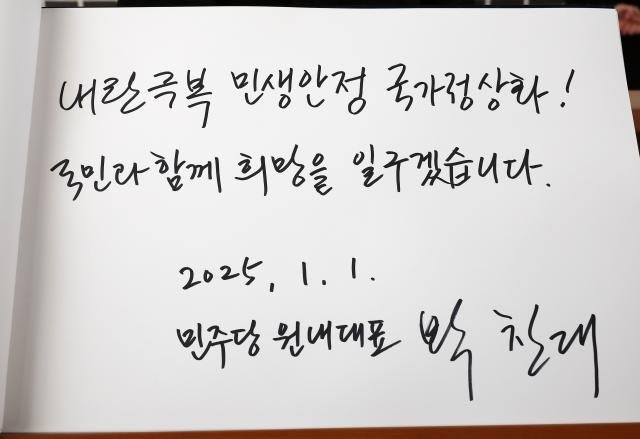 내란극복 민생안정 국가정상화!
국민과 함께 희망을 일구겠습니다.
2025. 1. 1.
민주당 원내대표 박찬대